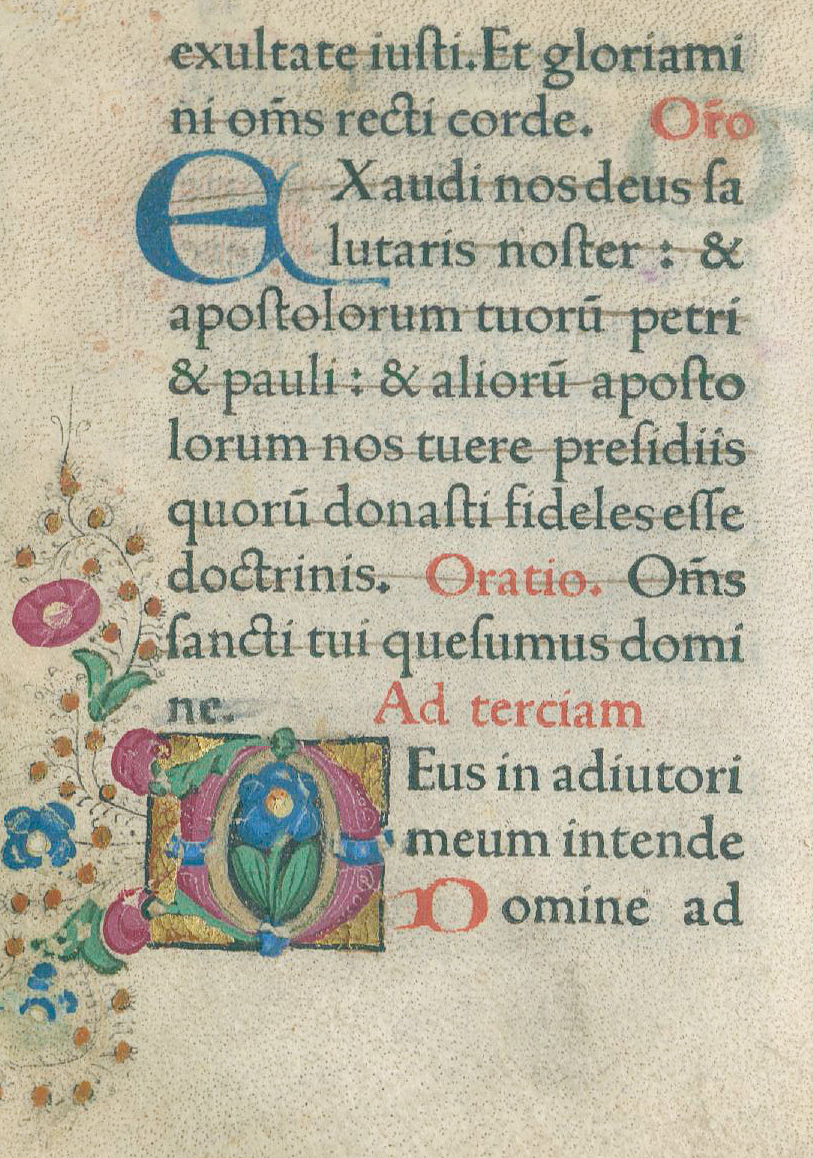 exultate iuſti. Et gloriami
ni om̄s recti corde. Or̄o
EXaudi nos deus ſa
lutaris noſter : &
apoſtolorum tuorū petri
& pauli : & aliorū apoſto
lorum nos tuere preſidiis
quorū donaſti fideles eſſe
doctrinis. Oratio. Om̄s
ſancti tui queſumus domi
ne. Ad terciam
DEus in adiutori
meum intende
Domine ad